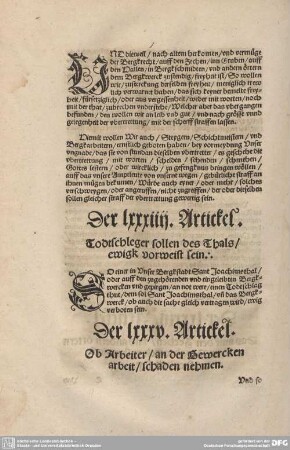 UND dieweil / nach altem herkomen / vnd vermüge
der Bergkrecht / auff den Zechen / inn Greben / auff
den Halten / in Bergkschmitten / vnd andern örtern
dem Bergkwerck zustendig / freyhait ist / So wollen
wir / zuuerhütung derselben freyhait / meniglich
verwarnet haben / das sich keiner
nach mit der that / zubrechen vnderstehe / Welcher aber das
befunden / den wollen wir an leib vnd gut / vnd nach grösse vnd
gelegenheit der vbertrettung / mit der scherff straffen lassen.
Hiemit wollen Wir auch / Steygern / Schichtmeistern / vnd
Bergkarbeitern / ernstlich geboten haben / bey vormeydung Vnser
vngnade / das sie von stundan dieselben
vbertrettung / mit worten / schelden / schenden /
Gottes lestern / oder wircklich / zu gefengknus bringen wöllen /
auff das vnser Amptleut von vnsernt wegen / gebürliche straff an
ihnen mügen bekumen / Würde auch einer / oder mehr / solchen
vorschweygen / oder angeruffen / nicht zugreiffen / der oder dieselben
sollen gleicher straff der vbertrettung gewertig sein.
Der lxxxiiij. Artickel.
Todtschleger sollen des Thals /
ewigk vorweist sein.
So einer in Vnser Bergkstadt Sant Joachimsthal /
oder auff den zugehörenden vnd eingeleibten Bergk-
wercken vnd gepirgen / an not were / einen Todtschlag
thut / dem sol Sant Joachimsthal / vnd das Bergk-
werck / ob auch die sache gleich vertragen wird / ewig
verboten sein.
Der lxxxv. Artickel.
Ob Arbeiter / an der Gewercken
arbeit / schaden nehmen.
Vnd so